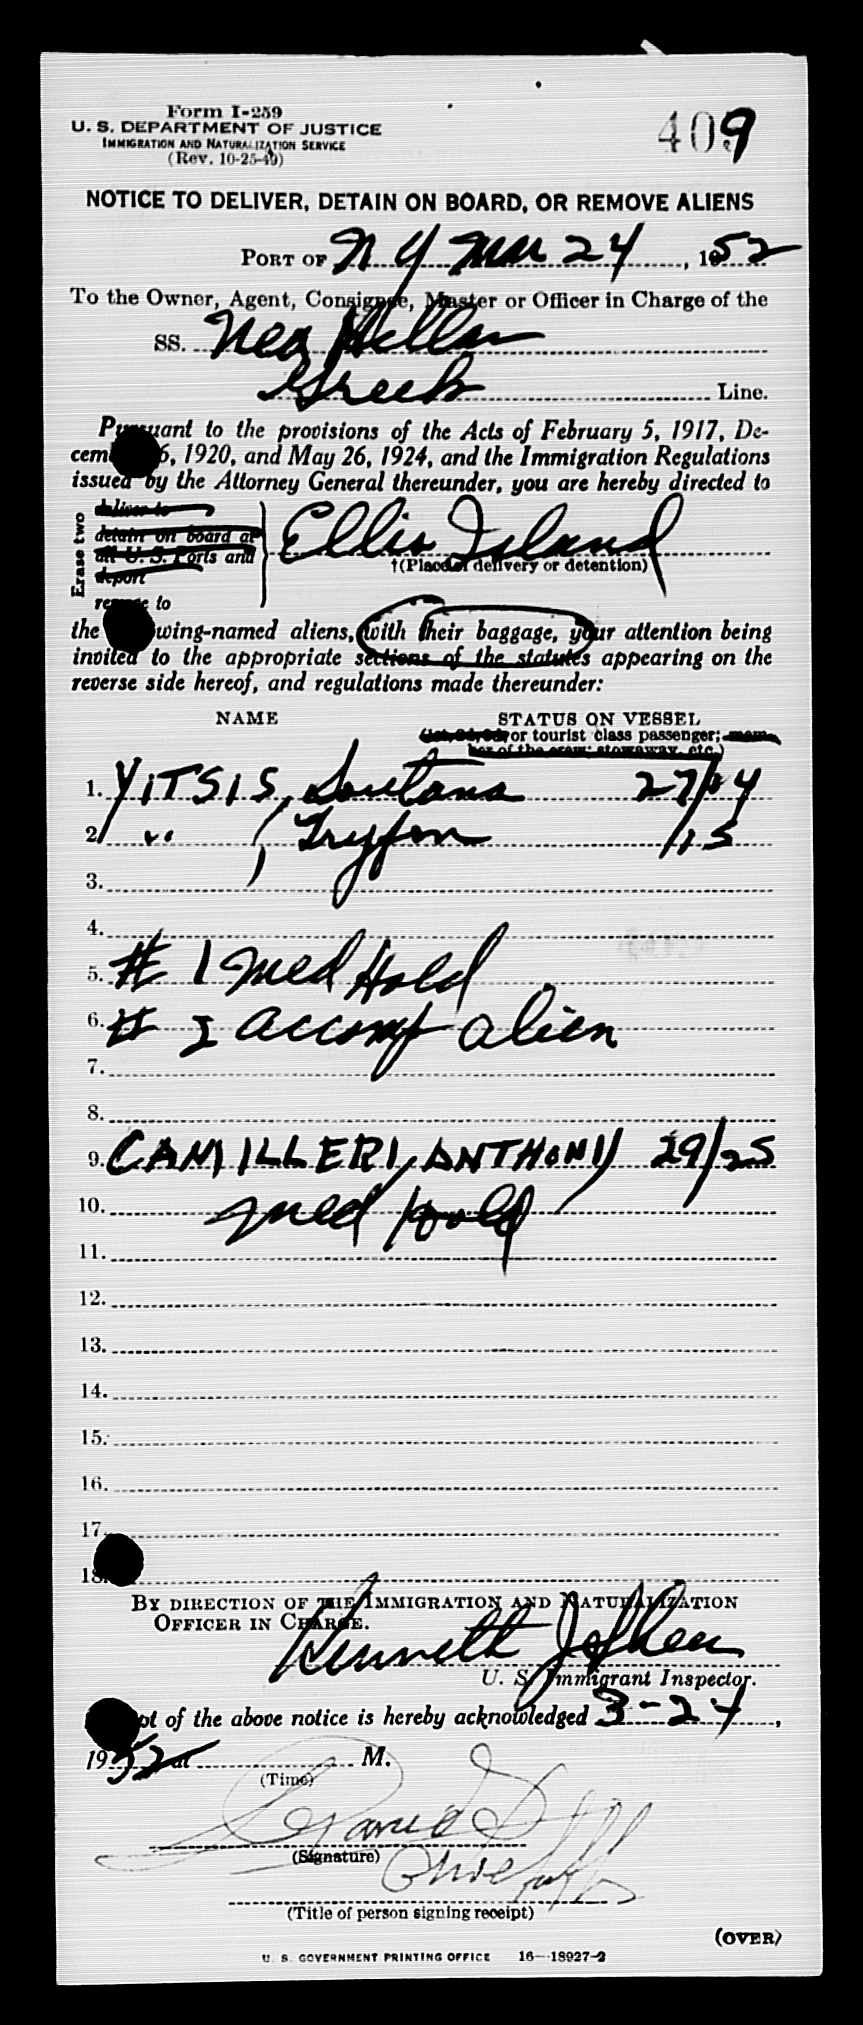 Form I-259
U. S. DEPARTMENT OF JUSTICE
IMMIGRATION AND NATURALIZATION SERVICE
(Rev. 10-25-49)
409
NOTICE TO DELIVER, DETAIN ON BOARD, OR REMOVE ALIENS
PORT OF N Y Mar 24, 1952
To the Owner, Agent, Consignee, Master or Officer in Charge of the
SS. Nea Hellas
Greek Line.
Pursuant to the provisions of the Acts of February 5, 1917, De-
cem 6, 1920, and May 26, 1924, and the Immigration Regulations
issued by the Attorney General thereunder, you are hereby directed to
Erase two
deliver to
detain on board at
all U. S. Ports and
deport
remove to
Ellis Island
†(Place of delivery or detention)
the wing-named aliens, with their baggage, your attention being
invited to the appropriate sections of the statutes appearing on the
reverse side hereof, and regulations made thereunder:
NAME STATUS ON VESSEL
(1st, 2d, 3d, or tourist class passenger; mem-
ber of the crew; stowaway, etc.)
1. YITSIS, Soultana 27/04
2. " , Tryfon /15
3.
4.
5. # 1 Med Hold
6. # 2 accomp alien
7.
8.
9. CAMILLERI, ANTHONY 29/25
10. med hold
11.
12.
13.
14.
15.
16.
17.
18.
BY DIRECTION OF THE IMMIGRATION AND NATURALIZATION
OFFICER IN CHARGE.
Kenneth
U. S. Immigrant Inspector.
pt of the above notice is hereby acknowledged 3-24,
1952 at M.
(Time)
(Signature)
(Title of person signing receipt)
(OVER)
U. S. GOVERNMENT PRINTING OFFICE 16—18927-2